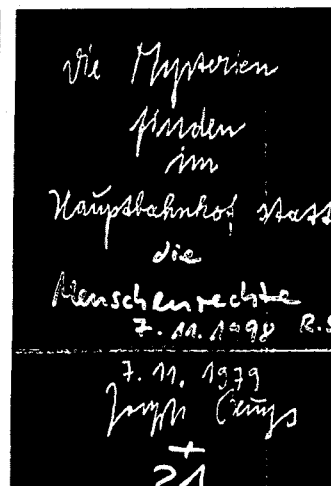 die Mysterien
finden
im
Hauptbahnhof statt
die
Menschenrechte
7. 11. 1998 R.S
7. 11. 1979
Joseph Beuys
+
21